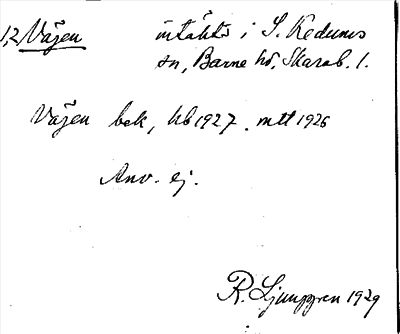 1,2 Väjen intäkt i S. Kedums
sn, Barne hd, Skarab. l.
Väjen bek, hb 1927. mtt 1926
Anv. ej.
R. Ljunggren 1929